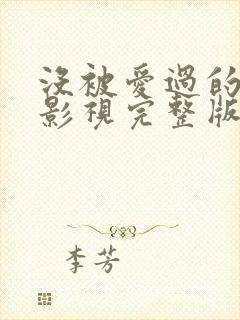 沒被愛過的
影視完整版
李芳